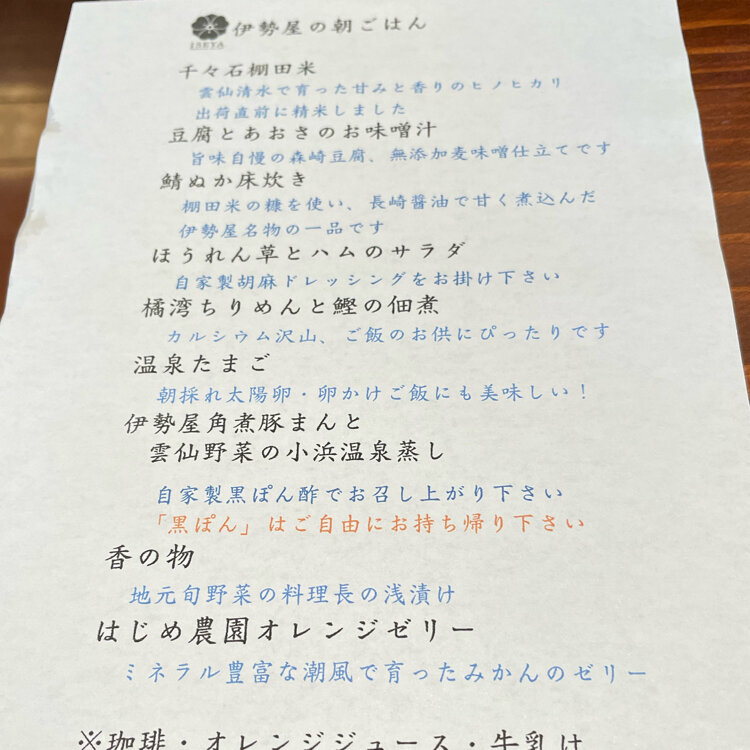 ISEYA
伊勢屋の朝ごはん
千々石棚田米
雲仙清水で育った甘みと香りのヒノヒカリ
出荷直前に精米しました
豆腐とあおさのお味噌汁
旨味自慢の森崎豆腐、無添加麦味噌仕立てです
鯖ぬか床炊き
棚田米の糠を使い、長崎醤油で甘く煮込んだ
伊勢屋名物の一品です
ほうれん草とハムのサラダ
自家製胡麻ドレッシングをお掛け下さい
橘湾ちりめんと鰹の佃煮
カルシウム沢山、ご飯のお供にぴったりです
温泉たまご
朝採れ太陽卵・卵かけご飯にも美味しい！
伊勢屋角煮豚まんと
雲仙野菜の小浜温泉蒸し
自家製黒ぽん酢でお召し上がり下さい
「黒ぽん」はご自由にお持ち帰り下さい
香の物
地元旬野菜の料理長の浅漬け
はじめ農園オレンジゼリー
ミネラル豊富な潮風で育ったみかんのゼリー
※珈琲・オレンジジュース・牛乳は